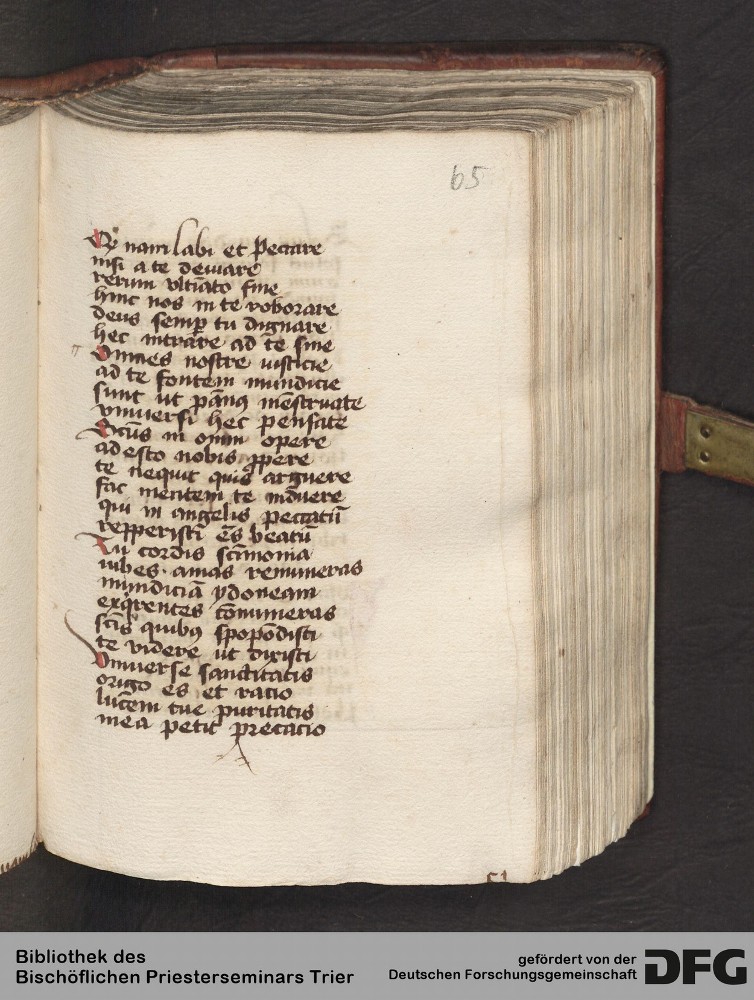 65
nam labi et peccare
nisi a te deviare
rerum vltiato fine
hinc nos in te roborare
deus semp tu dignare
hec intrare ad te sine
Omnes nostre iusticie
ad te fontem mundicie
sunt ut pānꝰ mēstruate
vniuersi hec pensate
in omni opere
adesto nobis ꝓpere
te nequit quis arguere
fac mentem te induere
qui in angelis peccatū
repperisti es beatū
Tu cordis scīmonia
iubes amas remuneras
mundiciā ydoneam
exqrentes cōnumeras
scīs quibꝰ spopōdisti
te videre ut dixisti
Vniuerse sanctitatis
origo es et racio
lucem tue puritatis
mea petit precacio
Bibliothek des
Bischöflichen Priesterseminars Trier
gefördert von der
Deutschen Forschungsgemeinschaft
DFG